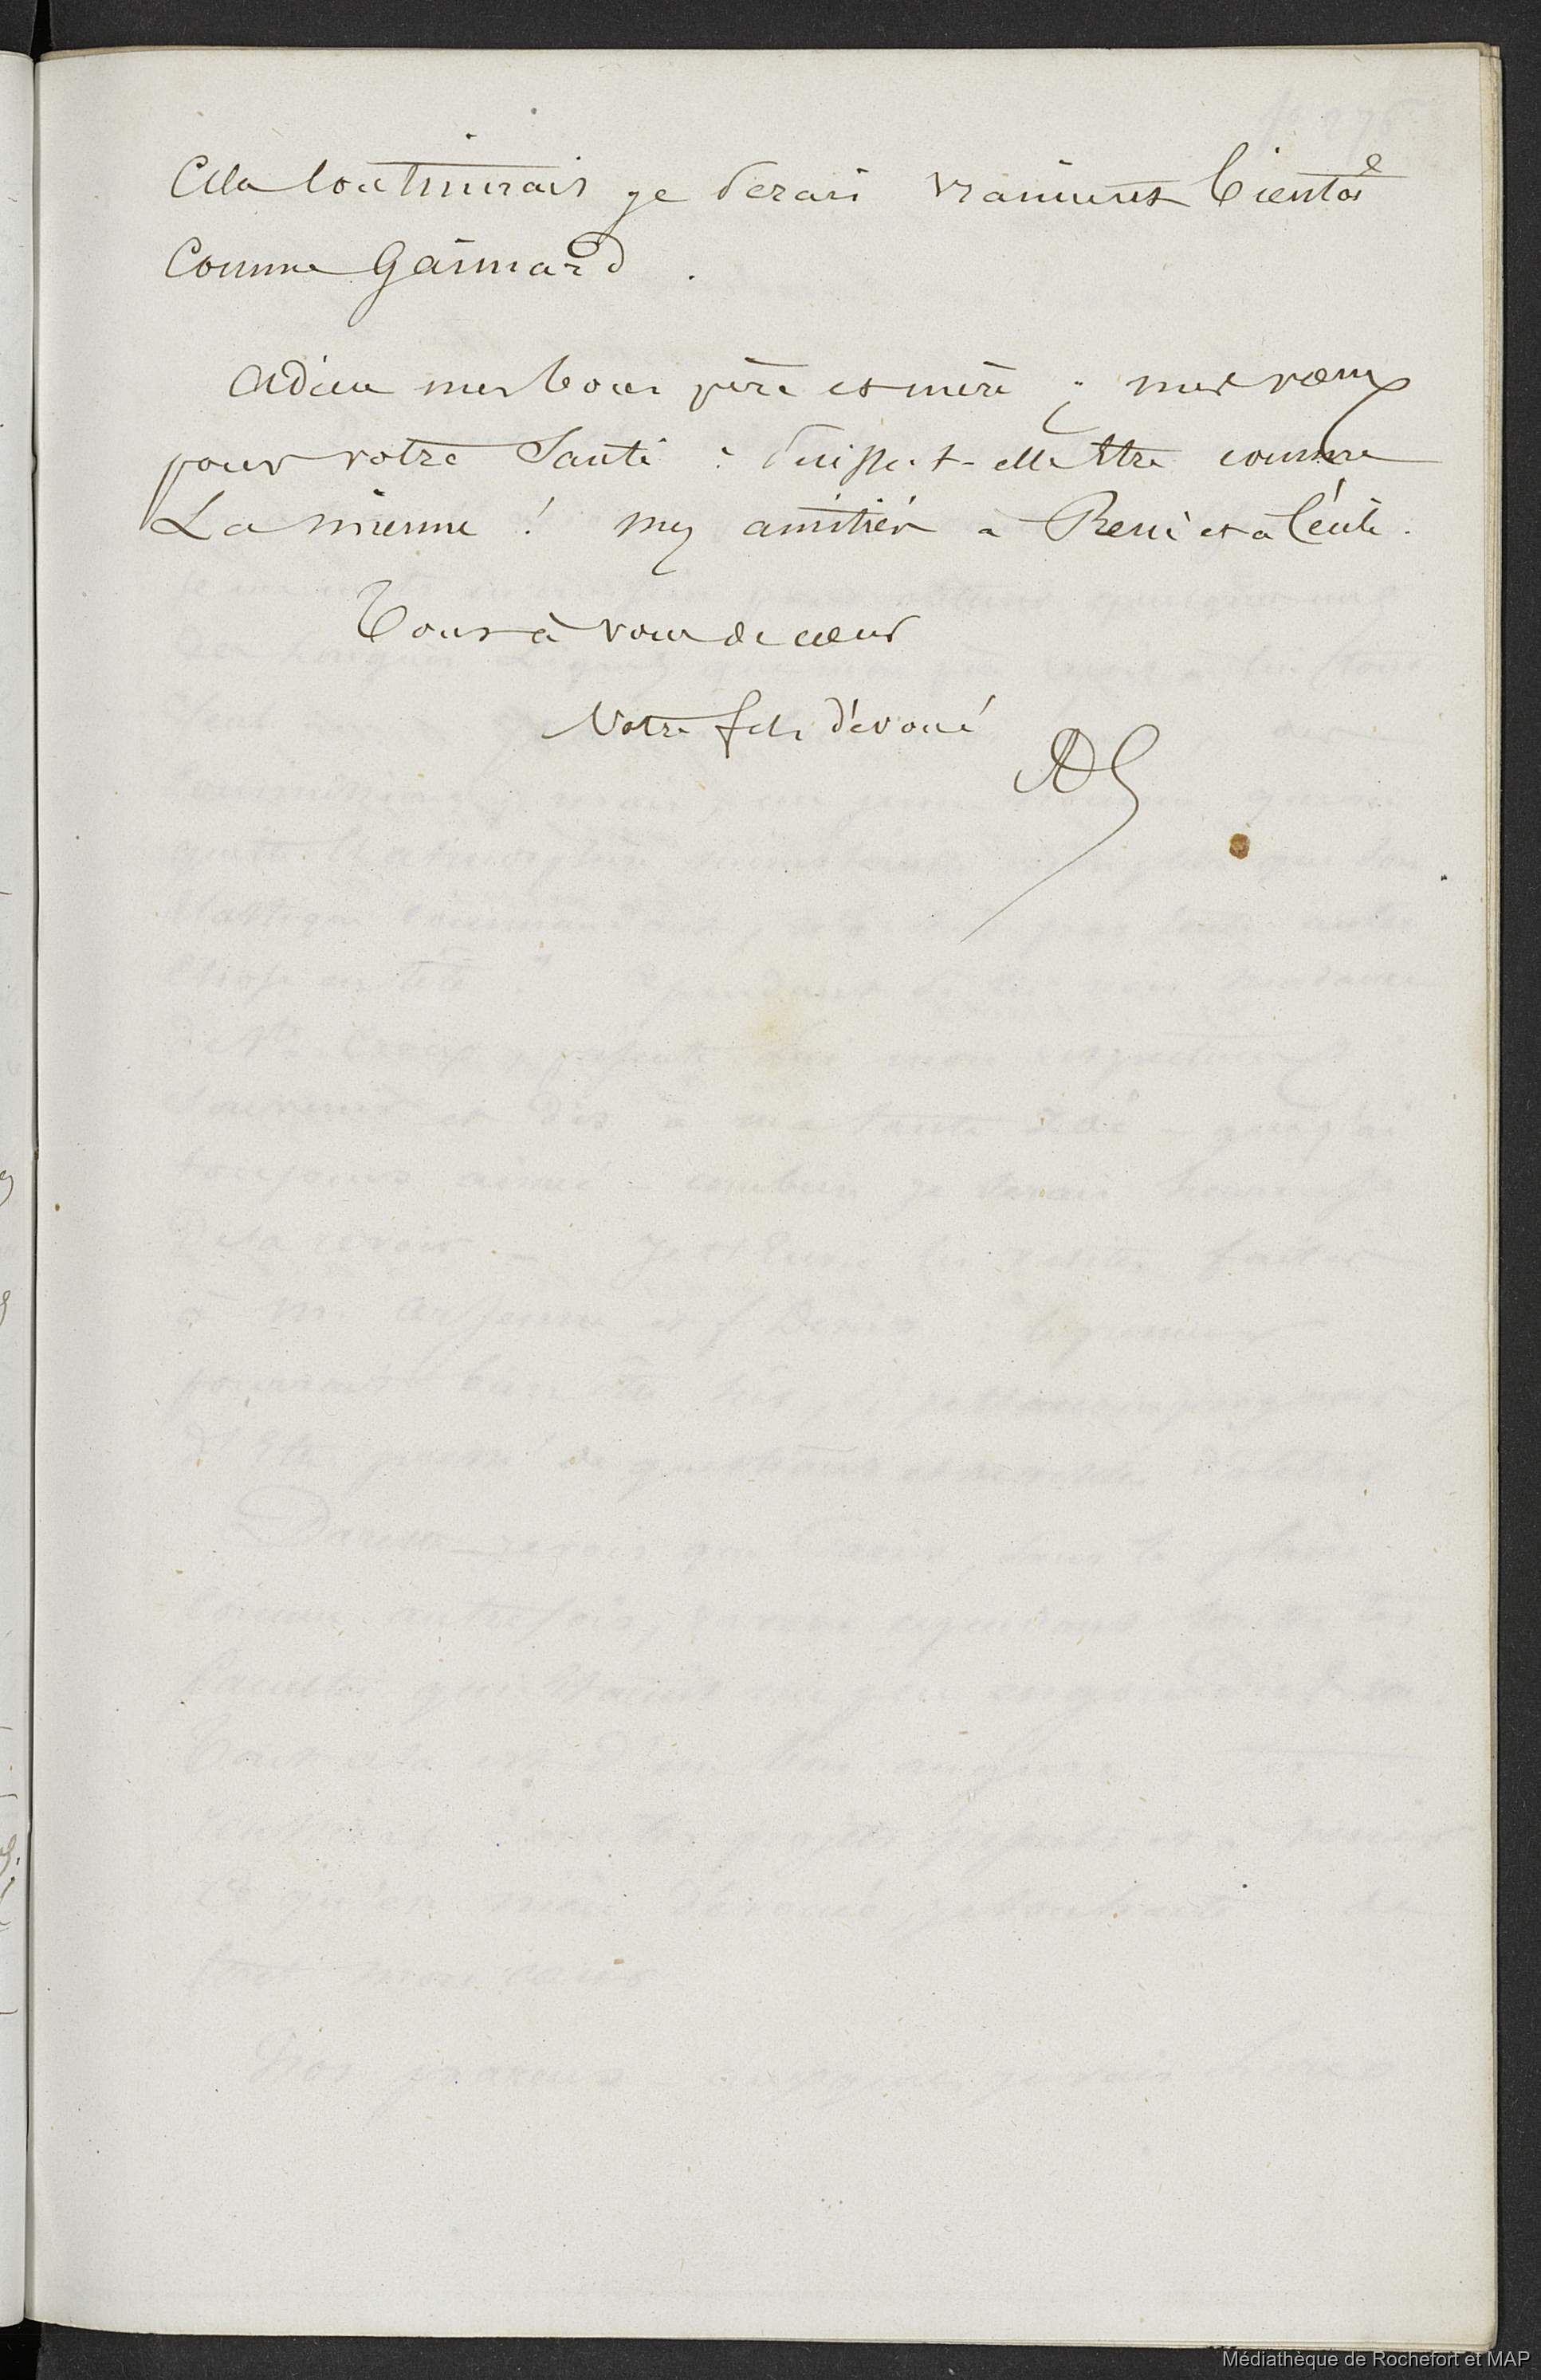 Cela continuait je serais vraiment bientôt
comme Gaimard.
Adieu mes bons père et mère ; mes vœux
pour votre santé : puisse-t-elle être comme
La mienne ! mes amitiés à René et à Cécile.
Tout à vous de cœur
Votre fils dévoué
Médiathèque de Rochefort et MAP